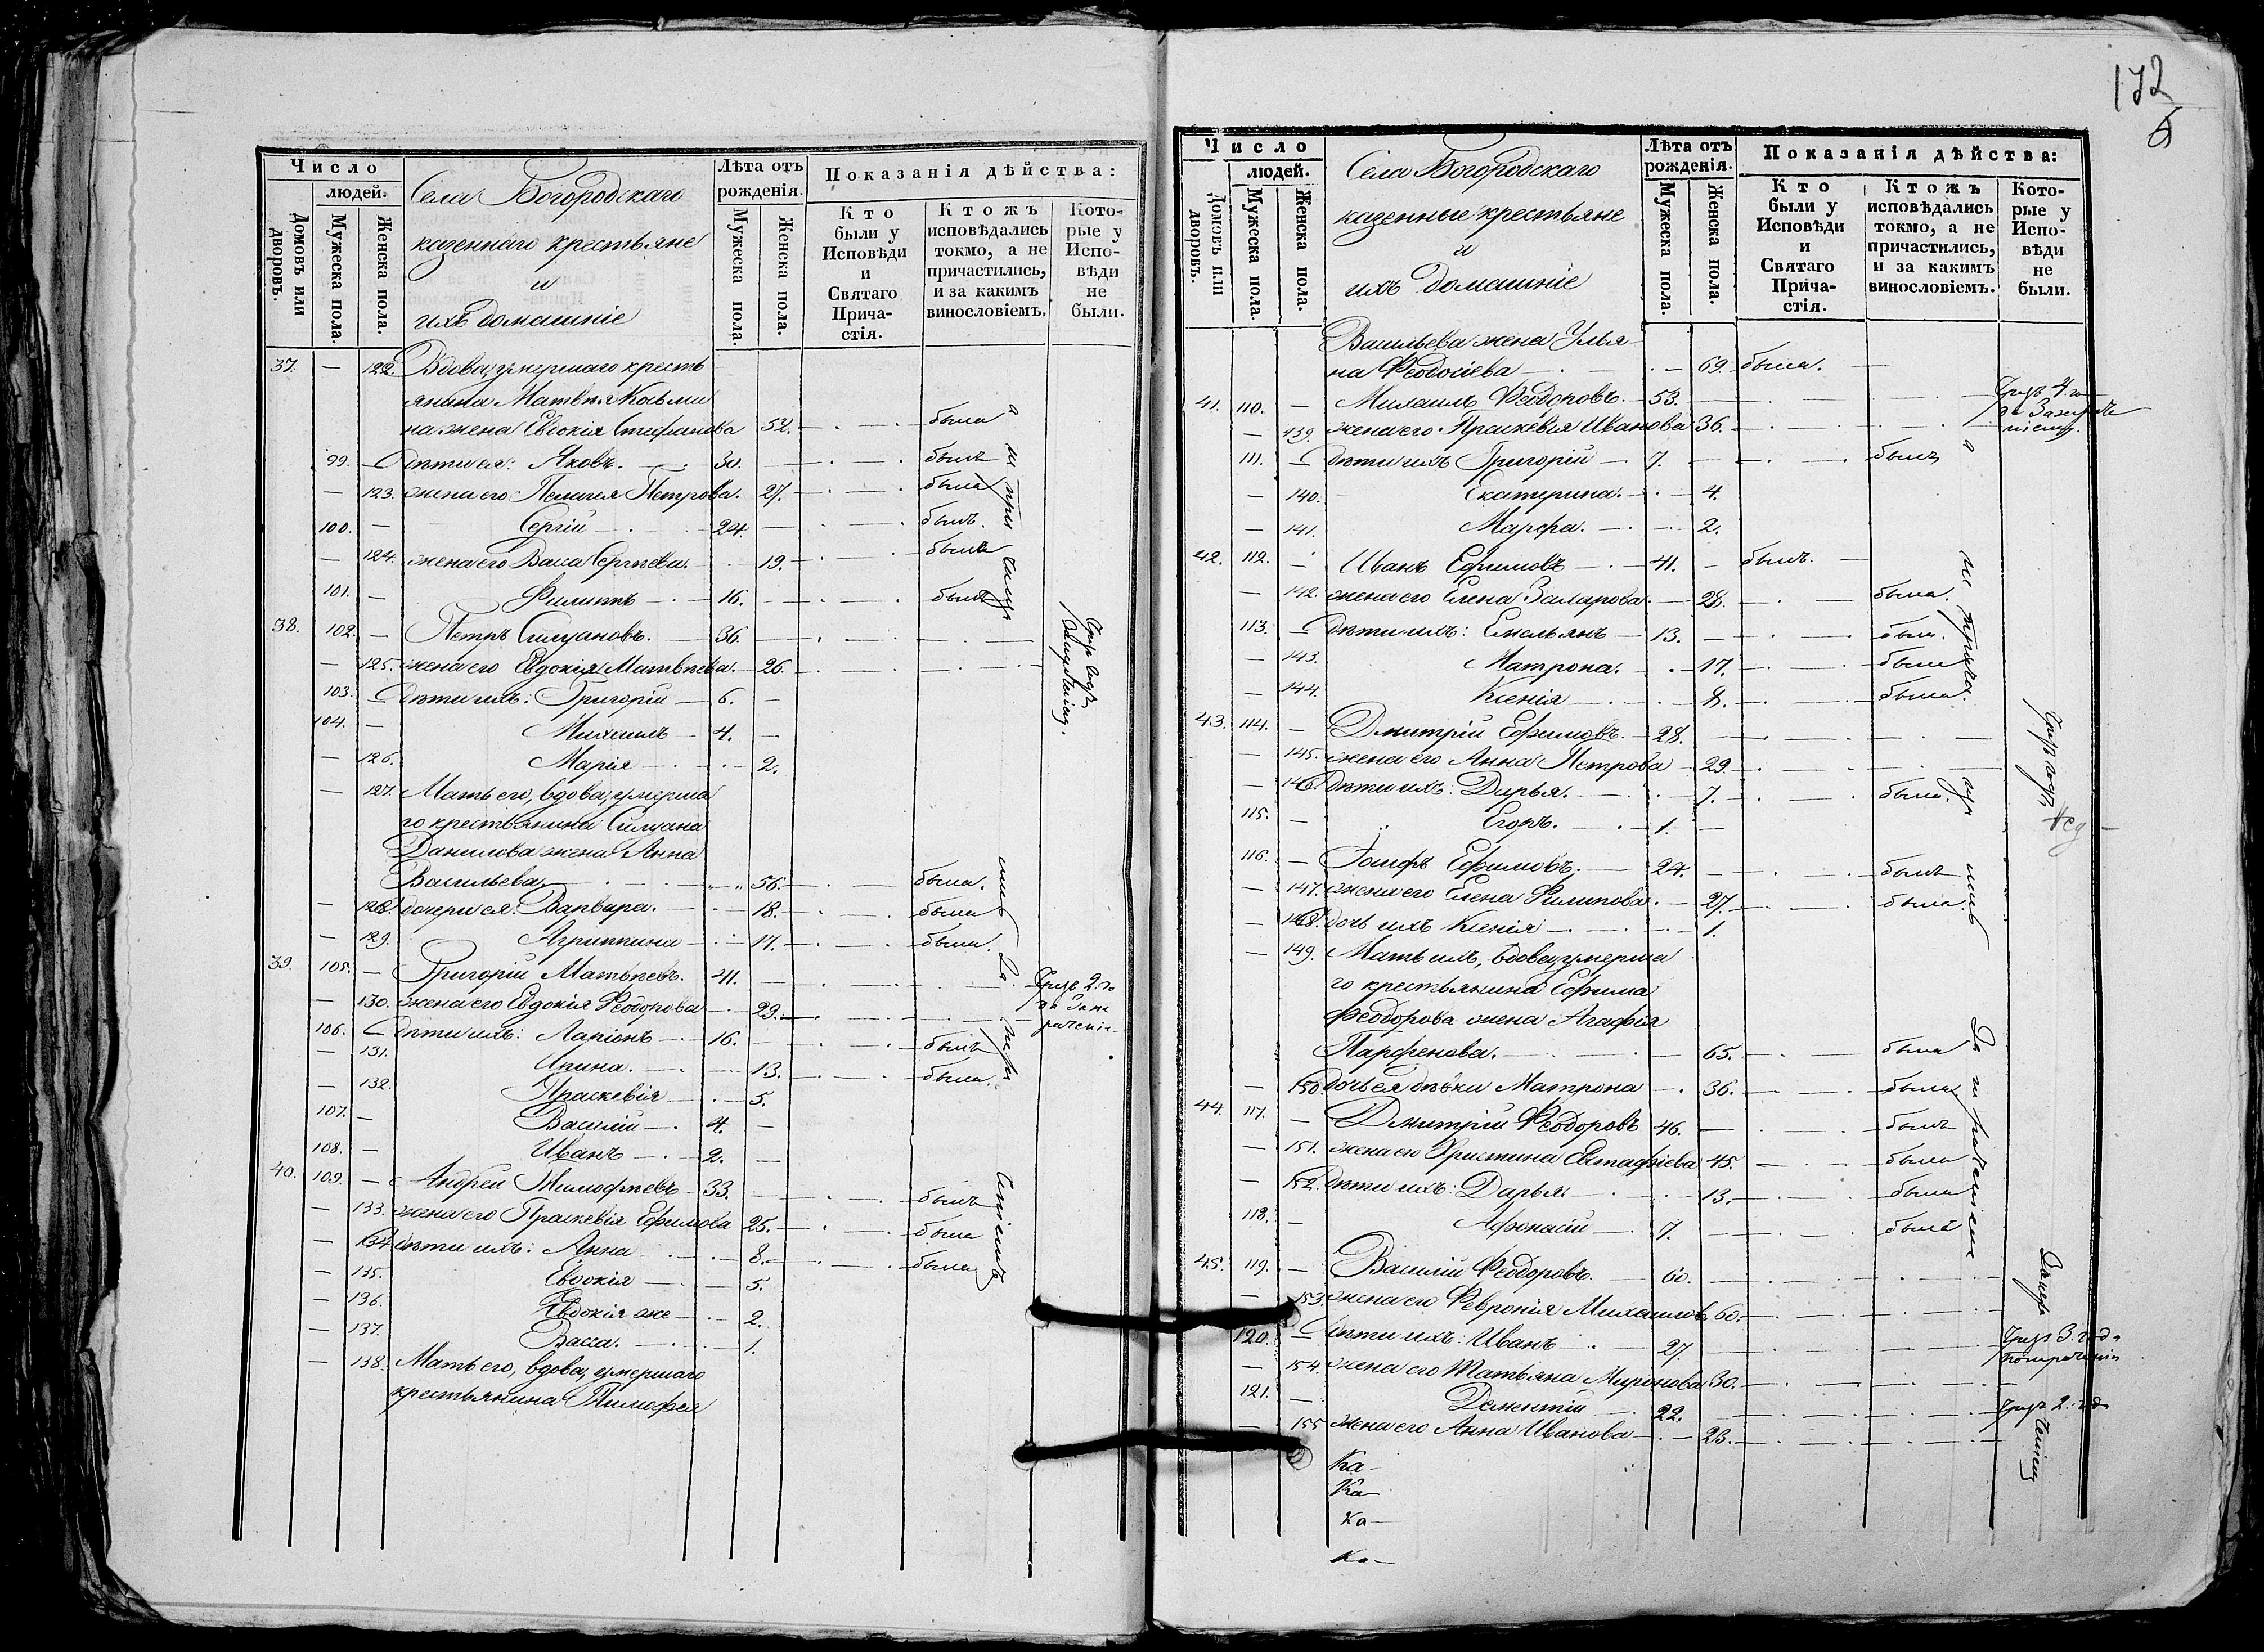 172
Число
людей.
Домовъ или дворовъ.
Мужеска пола.
Женска пола.
Села Богородскаго
казенного крестьяне
и
ихъ домашніе
Лѣта отъ рожденія.
Мужеска пола.
Женска пола.
Показанія дѣйства:
Кто были у Исповѣди и Святаго Прича-стія.
Ктожъ исповѣдались токмо, а не причастились, и за какимъ винословіемъ.
Кото-рые у Испо-вѣди не были.
37. — 122. Вдова, умершаго кресть
янина Матвѣя Козьми
на жена Евдокія Стефанова 52. была
99. — Дѣти ея: Яковъ. 30. былъ
— 123. жена его Пелагея Петрова. 27. была
100. — Сергій 24. былъ.
— 124. жена его Васса Сергѣева. 19. была
101. — Филиппъ 16. былъ
38. 102. — Петръ Силуановъ. 36.
— 125. жена его Евдокія Матвѣева. 26.
103. — Дѣти ихъ: Григорій 6. —
104. — Михаилъ 4. —
— 126. Марія 2.
— 127. Мать его, вдова, умерша
го крестьянина Силуана
Данилова жена Анна
Васильева. 56. была.
— 128. дочери ея: Варвара. 18. была
— 129. Агриппина 17. была.
39. 105. — Григорій Матвѣевъ. 41. Чрезъ 2. го
— 130. жена его Евдокія Феодорова 29.
106. — Дѣти ихъ: Ларіонъ 16. былъ
— 131. 13. была.
— 132. Праскевія 5.
107. — Василій 4. —
108. — Иванъ 2. —
40. 109. — Андрей Тимофеевъ 33. былъ
— 133. жена его Праскевія Ефимова 25. была
— 134. дѣти ихъ: Анна 8. была
— 135. Евдокія 5.
— 136. Евдокія же 2.
— 137. Васса. 1.
— 138. Мать его, вдова, умершаго
крестьянина Тимофея
Число
людей.
Домовъ или дворовъ.
Мужеска пола.
Женска пола.
Села Богородскаго
казенные крестьяне
и
ихъ домашніе
Лѣта отъ рожденія.
Мужеска пола.
Женска пола.
Показанія дѣйства:
Кто были у Исповѣди и Святаго Прича-стія.
Ктожъ исповѣдались токмо, а не причастились, и за какимъ винословіемъ.
Кото-рые у Испо-вѣди не были.
Васильева жена Улья
на Феодосіева 69. была.
41. 110. — Михаилъ Феодоровъ. 53.
— 139. жена его Праскевія Иванова 36.
111. — Дѣти ихъ Григорій 7. — былъ
— 140. Екатерина. 4.
— 141. Марфа. 2.
42. 112. — Иванъ Ефимовъ 41. — былъ.
— 142. жена его Елена Захарова. 28. была.
113. — Дѣти ихъ: Емельянъ 13. был.
— 143. Матрона. 17. была
— 144. Ксенія 8. была.
43. 114. — Дмитрій Ефимовъ. 28.
— 145. жена его Анна Петрова 29.
— 146. Дѣти ихъ: Дарья. 7. была.
115. — Егоръ. 1. —
116. — Іосифъ Ефимовъ. 24. былъ
— 147. жена его Елена Филипова. 27. была.
— 148. дочь ихъ Ксенія 1.
— 149. Мать ихъ, вдова, умерша
го крестьянина Ефима
Феодорова жена Агафія
Парфенова. 65. была
— 150. дочь ея дѣвка Матрона 36. была.
44. 117. — Дмитрій Феодоровъ 46. былъ
— 151. жена его Христина Евтафіева 45. была
— 152. Дѣти ихъ: Дарья. 13. была
118. — Афонасій 7. былъ
45. 119. — Василій Феодоровъ. 60.
— 153. жена его Февронія Михаилов. 60.
120. — Дѣти ихъ: Иванъ 27. Чрезъ 3. года
— 154. жена его Татьяна Миронова 30.
121. — Дементій 22. Чрезъ 2. года
— 155 жена его Анна Иванова 23.
Ка—
Ка—
Ка—
Ка—